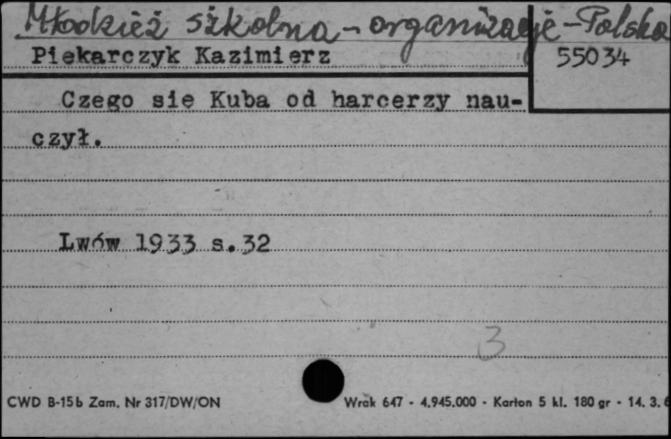 Młodzież szkolna - organizacje - Polska
Piekarczyk Kazimierz
55034
Czego się Kuba od harcerzy nau-
czył.
Lwów 1933 s.32
3
CWD B-15b Zam. Nr 317/DW/ON
Wrak 647 - 4.945.000 - Karton 5 kl. 180 gr - 14. 3. 6